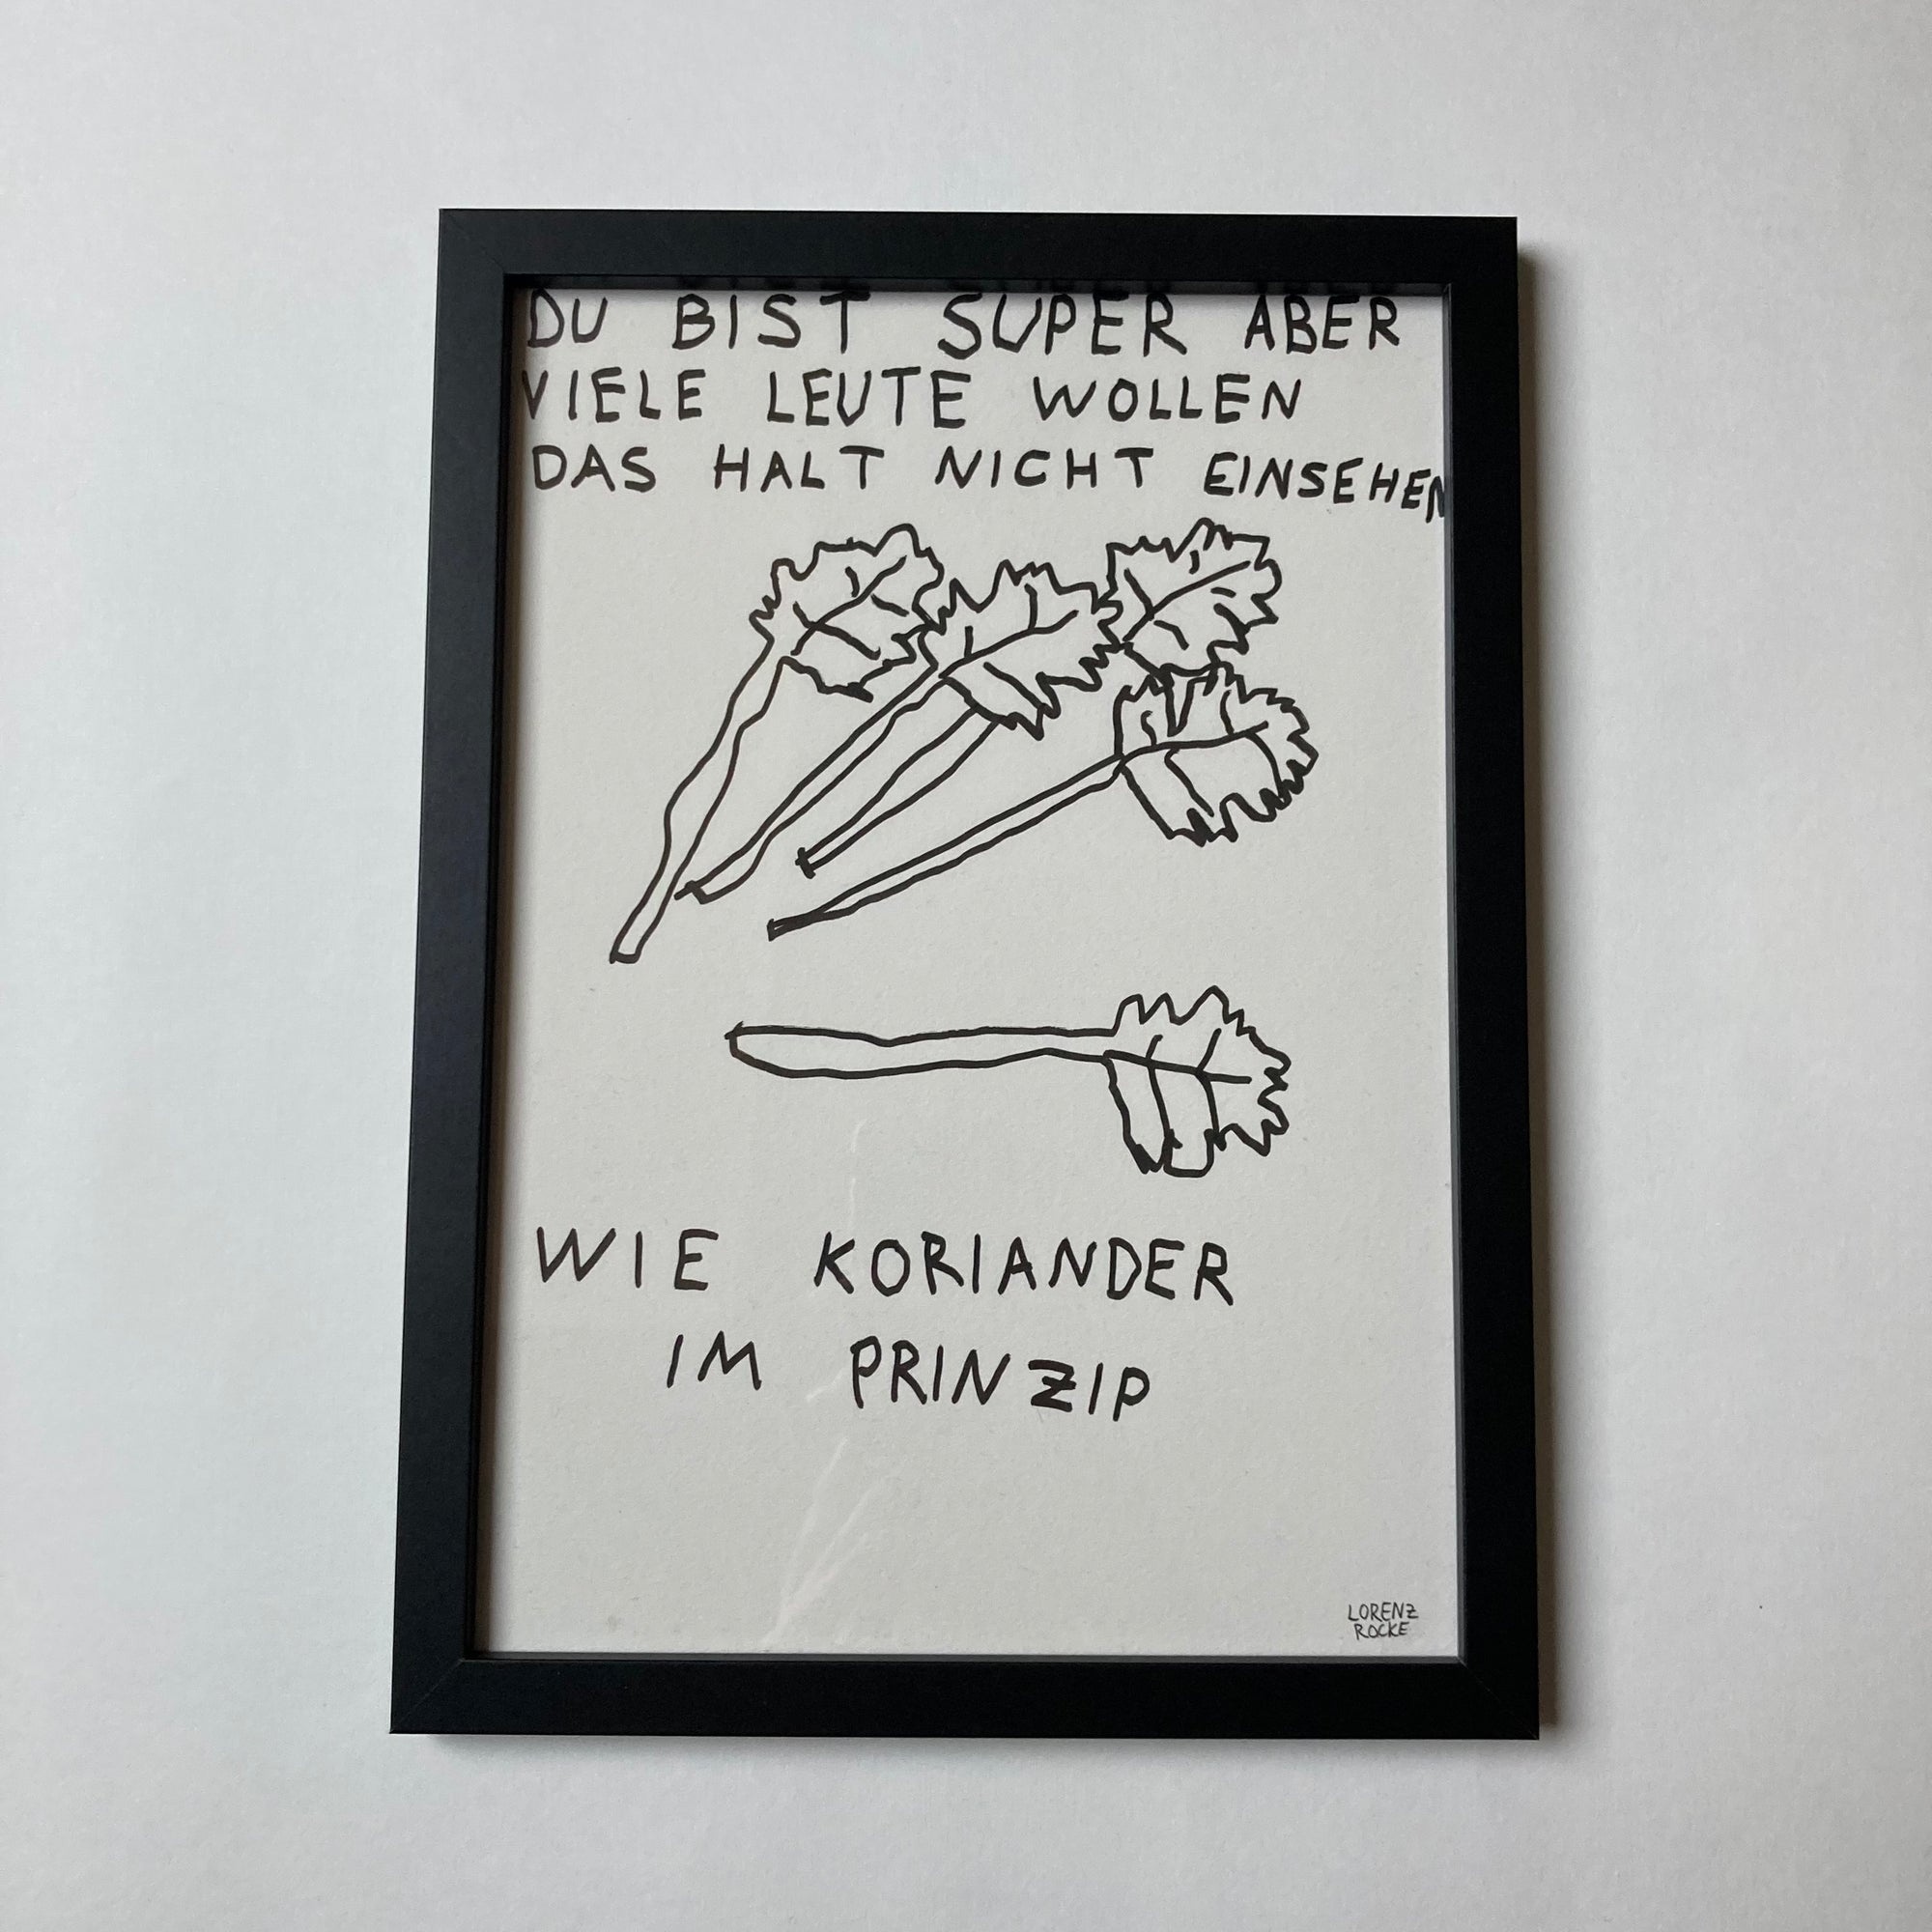 DU BIST SUPER ABER
VIELE LEUTE WOLLEN
DAS HALT NICHT EINSEHEN
WIE KORIANDER
IM PRINZIP
LORENZ
ROCKE